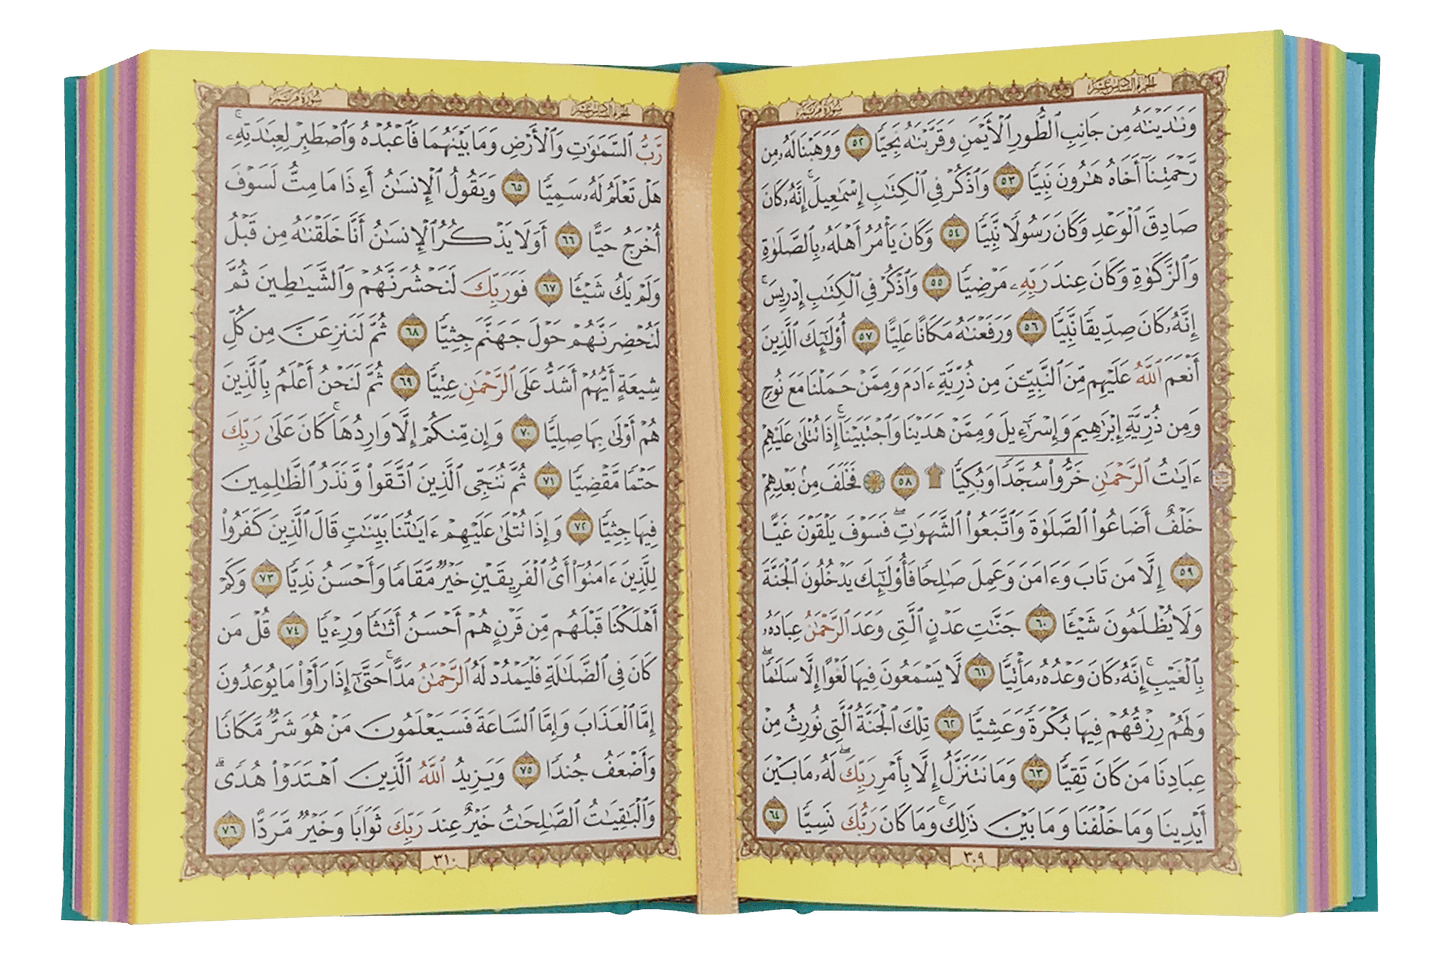 الجزء السادس عشر
سورة مريم
وَنَـٰدَيْنَـٰهُ مِن جَانِبِ ٱلطُّورِ ٱلْأَيْمَنِ وَقَرَّبْنَـٰهُ نَجِيًّا ٥٢ وَوَهَبْنَا لَهُۥ مِن
رَّحْمَتِنَآ أَخَاهُ هَـٰرُونَ نَبِيًّا ٥٣ وَٱذْكُرْ فِى ٱلْكِتَـٰبِ إِسْمَـٰعِيلَ ۚ إِنَّهُۥ كَانَ
صَادِقَ ٱلْوَعْدِ وَكَانَ رَسُولًا نَّبِيًّا ٥٤ وَكَانَ يَأْمُرُ أَهْلَهُۥ بِٱلصَّلَوٰةِ
وَٱلزَّكَوٰةِ وَكَانَ عِندَ رَبِّهِۦ مَرْضِيًّا ٥٥ وَٱذْكُرْ فِى ٱلْكِتَـٰبِ إِدْرِيسَ ۚ
إِنَّهُۥ كَانَ صِدِّيقًا نَّبِيًّا ٥٦ وَرَفَعْنَـٰهُ مَكَانًا عَلِيًّا ٥٧ أُو۟لَـٰٓئِكَ ٱلَّذِينَ
أَنْعَمَ ٱللَّهُ عَلَيْهِم مِّنَ ٱلنَّبِيِّـۧنَ مِن ذُرِّيَّةِ ءَادَمَ وَمِمَّنْ حَمَلْنَا مَعَ نُوحٍ
وَمِن ذُرِّيَّةِ إِبْرَٰهِيمَ وَإِسْرَٰٓءِيلَ وَمِمَّنْ هَدَيْنَا وَٱجْتَبَيْنَآ ۚ إِذَا تُتْلَىٰ عَلَيْهِمْ
ءَايَـٰتُ ٱلرَّحْمَـٰنِ خَرُّوا۟ سُجَّدًا وَبُكِيًّا ٥٨ فَخَلَفَ مِنۢ بَعْدِهِمْ
خَلْفٌ أَضَاعُوا۟ ٱلصَّلَوٰةَ وَٱتَّبَعُوا۟ ٱلشَّهَوَٰتِ ۖ فَسَوْفَ يَلْقَوْنَ غَيًّا
٥٩ إِلَّا مَن تَابَ وَءَامَنَ وَعَمِلَ صَـٰلِحًا فَأُو۟لَـٰٓئِكَ يَدْخُلُونَ ٱلْجَنَّةَ
وَلَا يُظْلَمُونَ شَيْـًٔا ٦٠ جَنَّـٰتِ عَدْنٍ ٱلَّتِى وَعَدَ ٱلرَّحْمَـٰنُ عِبَادَهُۥ
بِٱلْغَيْبِ ۚ إِنَّهُۥ كَانَ وَعْدُهُۥ مَأْتِيًّا ٦١ لَّا يَسْمَعُونَ فِيهَا لَغْوًا إِلَّا سَلَـٰمًا ۖ
وَلَهُمْ رِزْقُهُمْ فِيهَا بُكْرَةً وَعَشِيًّا ٦٢ تِلْكَ ٱلْجَنَّةُ ٱلَّتِى نُورِثُ مِنْ
عِبَادِنَا مَن كَانَ تَقِيًّا ٦٣ وَمَا نَتَنَزَّلُ إِلَّا بِأَمْرِ رَبِّكَ ۖ لَهُۥ مَا بَيْنَ
أَيْدِينَا وَمَا خَلْفَنَا وَمَا بَيْنَ ذَٰلِكَ ۚ وَمَا كَانَ رَبُّكَ نَسِيًّا ٦٤
٣٠٩
الجزء السادس عشر
سورة مريم
رَّبُّ ٱلسَّمَـٰوَٰتِ وَٱلْأَرْضِ وَمَا بَيْنَهُمَا فَٱعْبُدْهُ وَٱصْطَبِرْ لِعِبَـٰدَتِهِۦ ۚ
هَلْ تَعْلَمُ لَهُۥ سَمِيًّا ٦٥ وَيَقُولُ ٱلْإِنسَـٰنُ أَءِذَا مَا مِتُّ لَسَوْفَ
أُخْرَجُ حَيًّا ٦٦ أَوَلَا يَذْكُرُ ٱلْإِنسَـٰنُ أَنَّا خَلَقْنَـٰهُ مِن قَبْلُ
وَلَمْ يَكُ شَيْـًٔا ٦٧ فَوَرَبِّكَ لَنَحْشُرَنَّهُمْ وَٱلشَّيَـٰطِينَ ثُمَّ
لَنُحْضِرَنَّهُمْ حَوْلَ جَهَنَّمَ جِثِيًّا ٦٨ ثُمَّ لَنَنزِعَنَّ مِن كُلِّ
شِيعَةٍ أَيُّهُمْ أَشَدُّ عَلَى ٱلرَّحْمَـٰنِ عِتِيًّا ٦٩ ثُمَّ لَنَحْنُ أَعْلَمُ بِٱلَّذِينَ
هُمْ أَوْلَىٰ بِهَا صِلِيًّا ٧٠ وَإِن مِّنكُمْ إِلَّا وَارِدُهَا ۚ كَانَ عَلَىٰ رَبِّكَ
حَتْمًا مَّقْضِيًّا ٧١ ثُمَّ نُنَجِّى ٱلَّذِينَ ٱتَّقَوا۟ وَّنَذَرُ ٱلظَّـٰلِمِينَ
فِيهَا جِثِيًّا ٧٢ وَإِذَا تُتْلَىٰ عَلَيْهِمْ ءَايَـٰتُنَا بَيِّنَـٰتٍ قَالَ ٱلَّذِينَ كَفَرُوا۟
لِلَّذِينَ ءَامَنُوٓا۟ أَىُّ ٱلْفَرِيقَيْنِ خَيْرٌ مَّقَامًا وَأَحْسَنُ نَدِيًّا ٧٣ وَكَمْ
أَهْلَكْنَا قَبْلَهُم مِّن قَرْنٍ هُمْ أَحْسَنُ أَثَـٰثًا وَرِءْيًا ٧٤ قُلْ مَن
كَانَ فِى ٱلضَّلَـٰلَةِ فَلْيَمْدُدْ لَهُ ٱلرَّحْمَـٰنُ مَدًّا ۚ حَتَّىٰٓ إِذَا رَأَوْا۟ مَا يُوعَدُونَ
إِمَّا ٱلْعَذَابَ وَإِمَّا ٱلسَّاعَةَ فَسَيَعْلَمُونَ مَنْ هُوَ شَرٌّ مَّكَانًا
وَأَضْعَفُ جُندًا ٧٥ وَيَزِيدُ ٱللَّهُ ٱلَّذِينَ ٱهْتَدَوْا۟ هُدًى ۗ
وَٱلْبَـٰقِيَـٰتُ ٱلصَّـٰلِحَـٰتُ خَيْرٌ عِندَ رَبِّكَ ثَوَابًا وَخَيْرٌ مَّرَدًّا ٧٦
٣١٠